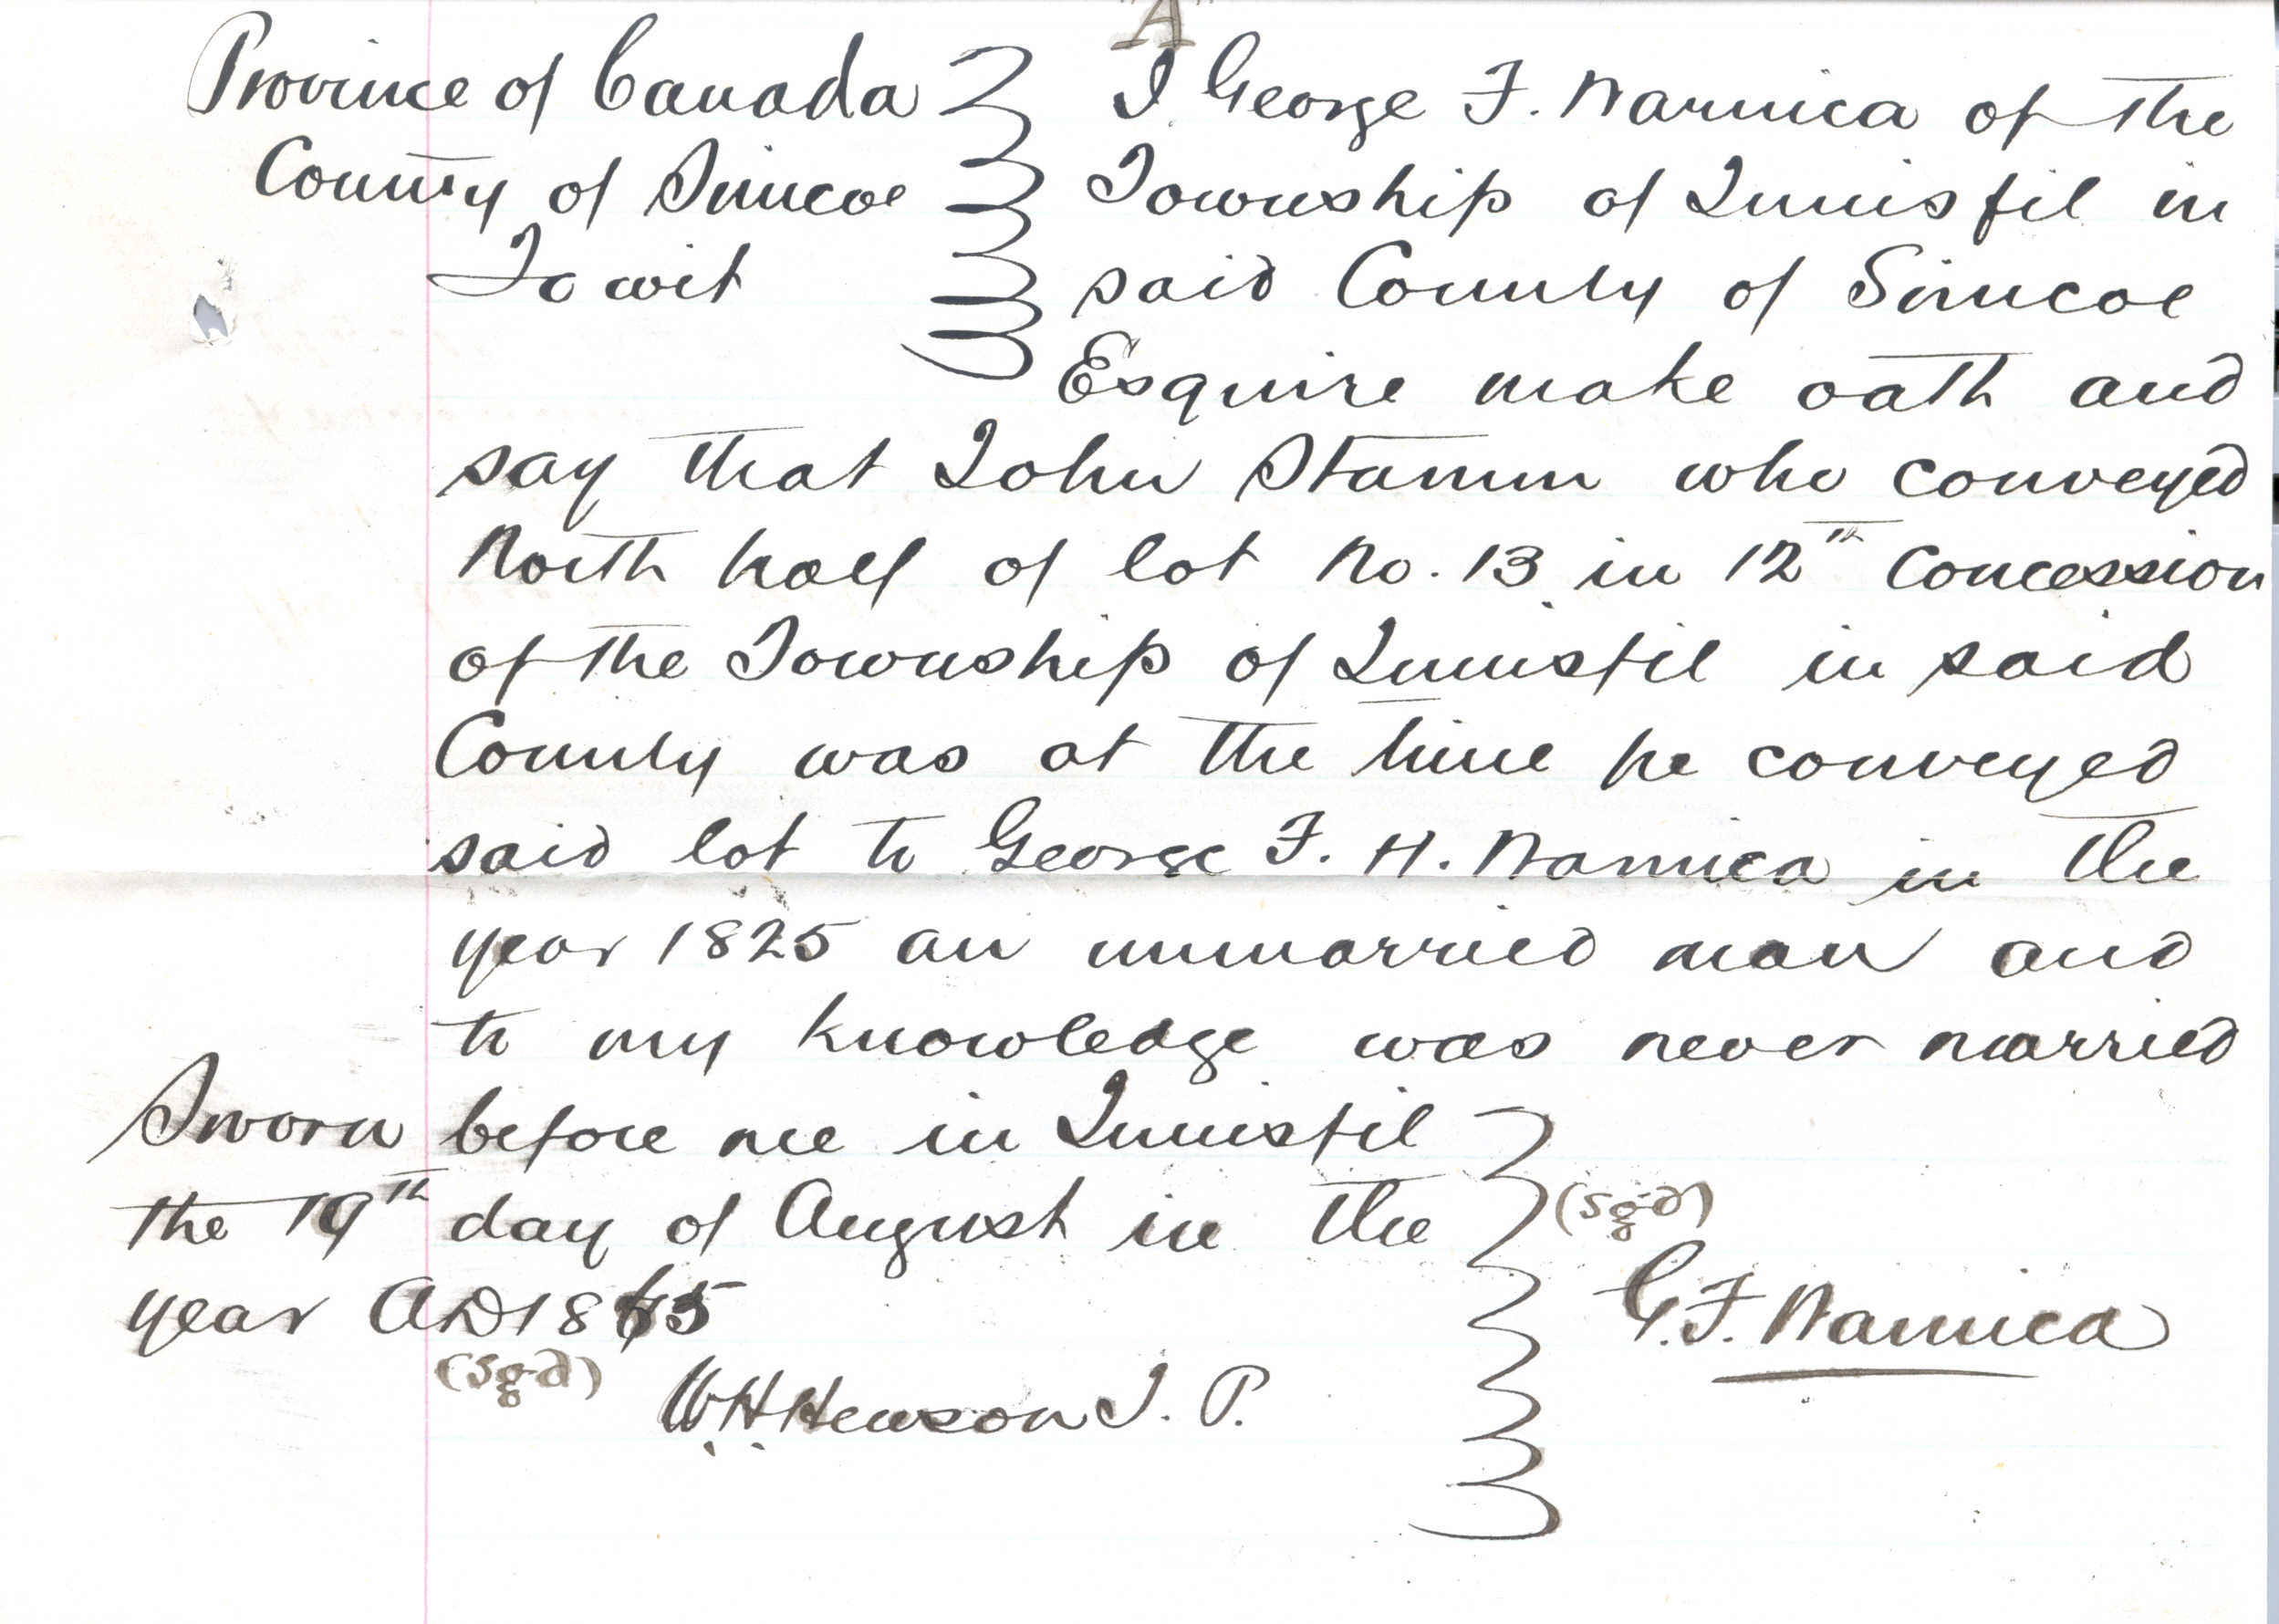 "A"
Province of Canada
County of Simcoe
To wit
I George F. Narnica of the
Township of Innisfil in
said County of Simcoe
Esquire make oath and
say that John Stamm who conveyed
North half of lot No. 13 in 12th Concession
of the Township of Innisfil in said
County was at the time he conveyed
said lot to George F. H. Narnica in the
year 1825 an unmarried man and
to my knowledge was never married
Sworn before me in Innisfil
the 19th day of August in the
year AD 1865
(Sgd)
W.H. Hewson J. P.
(Sgd)
G. F. Narnica